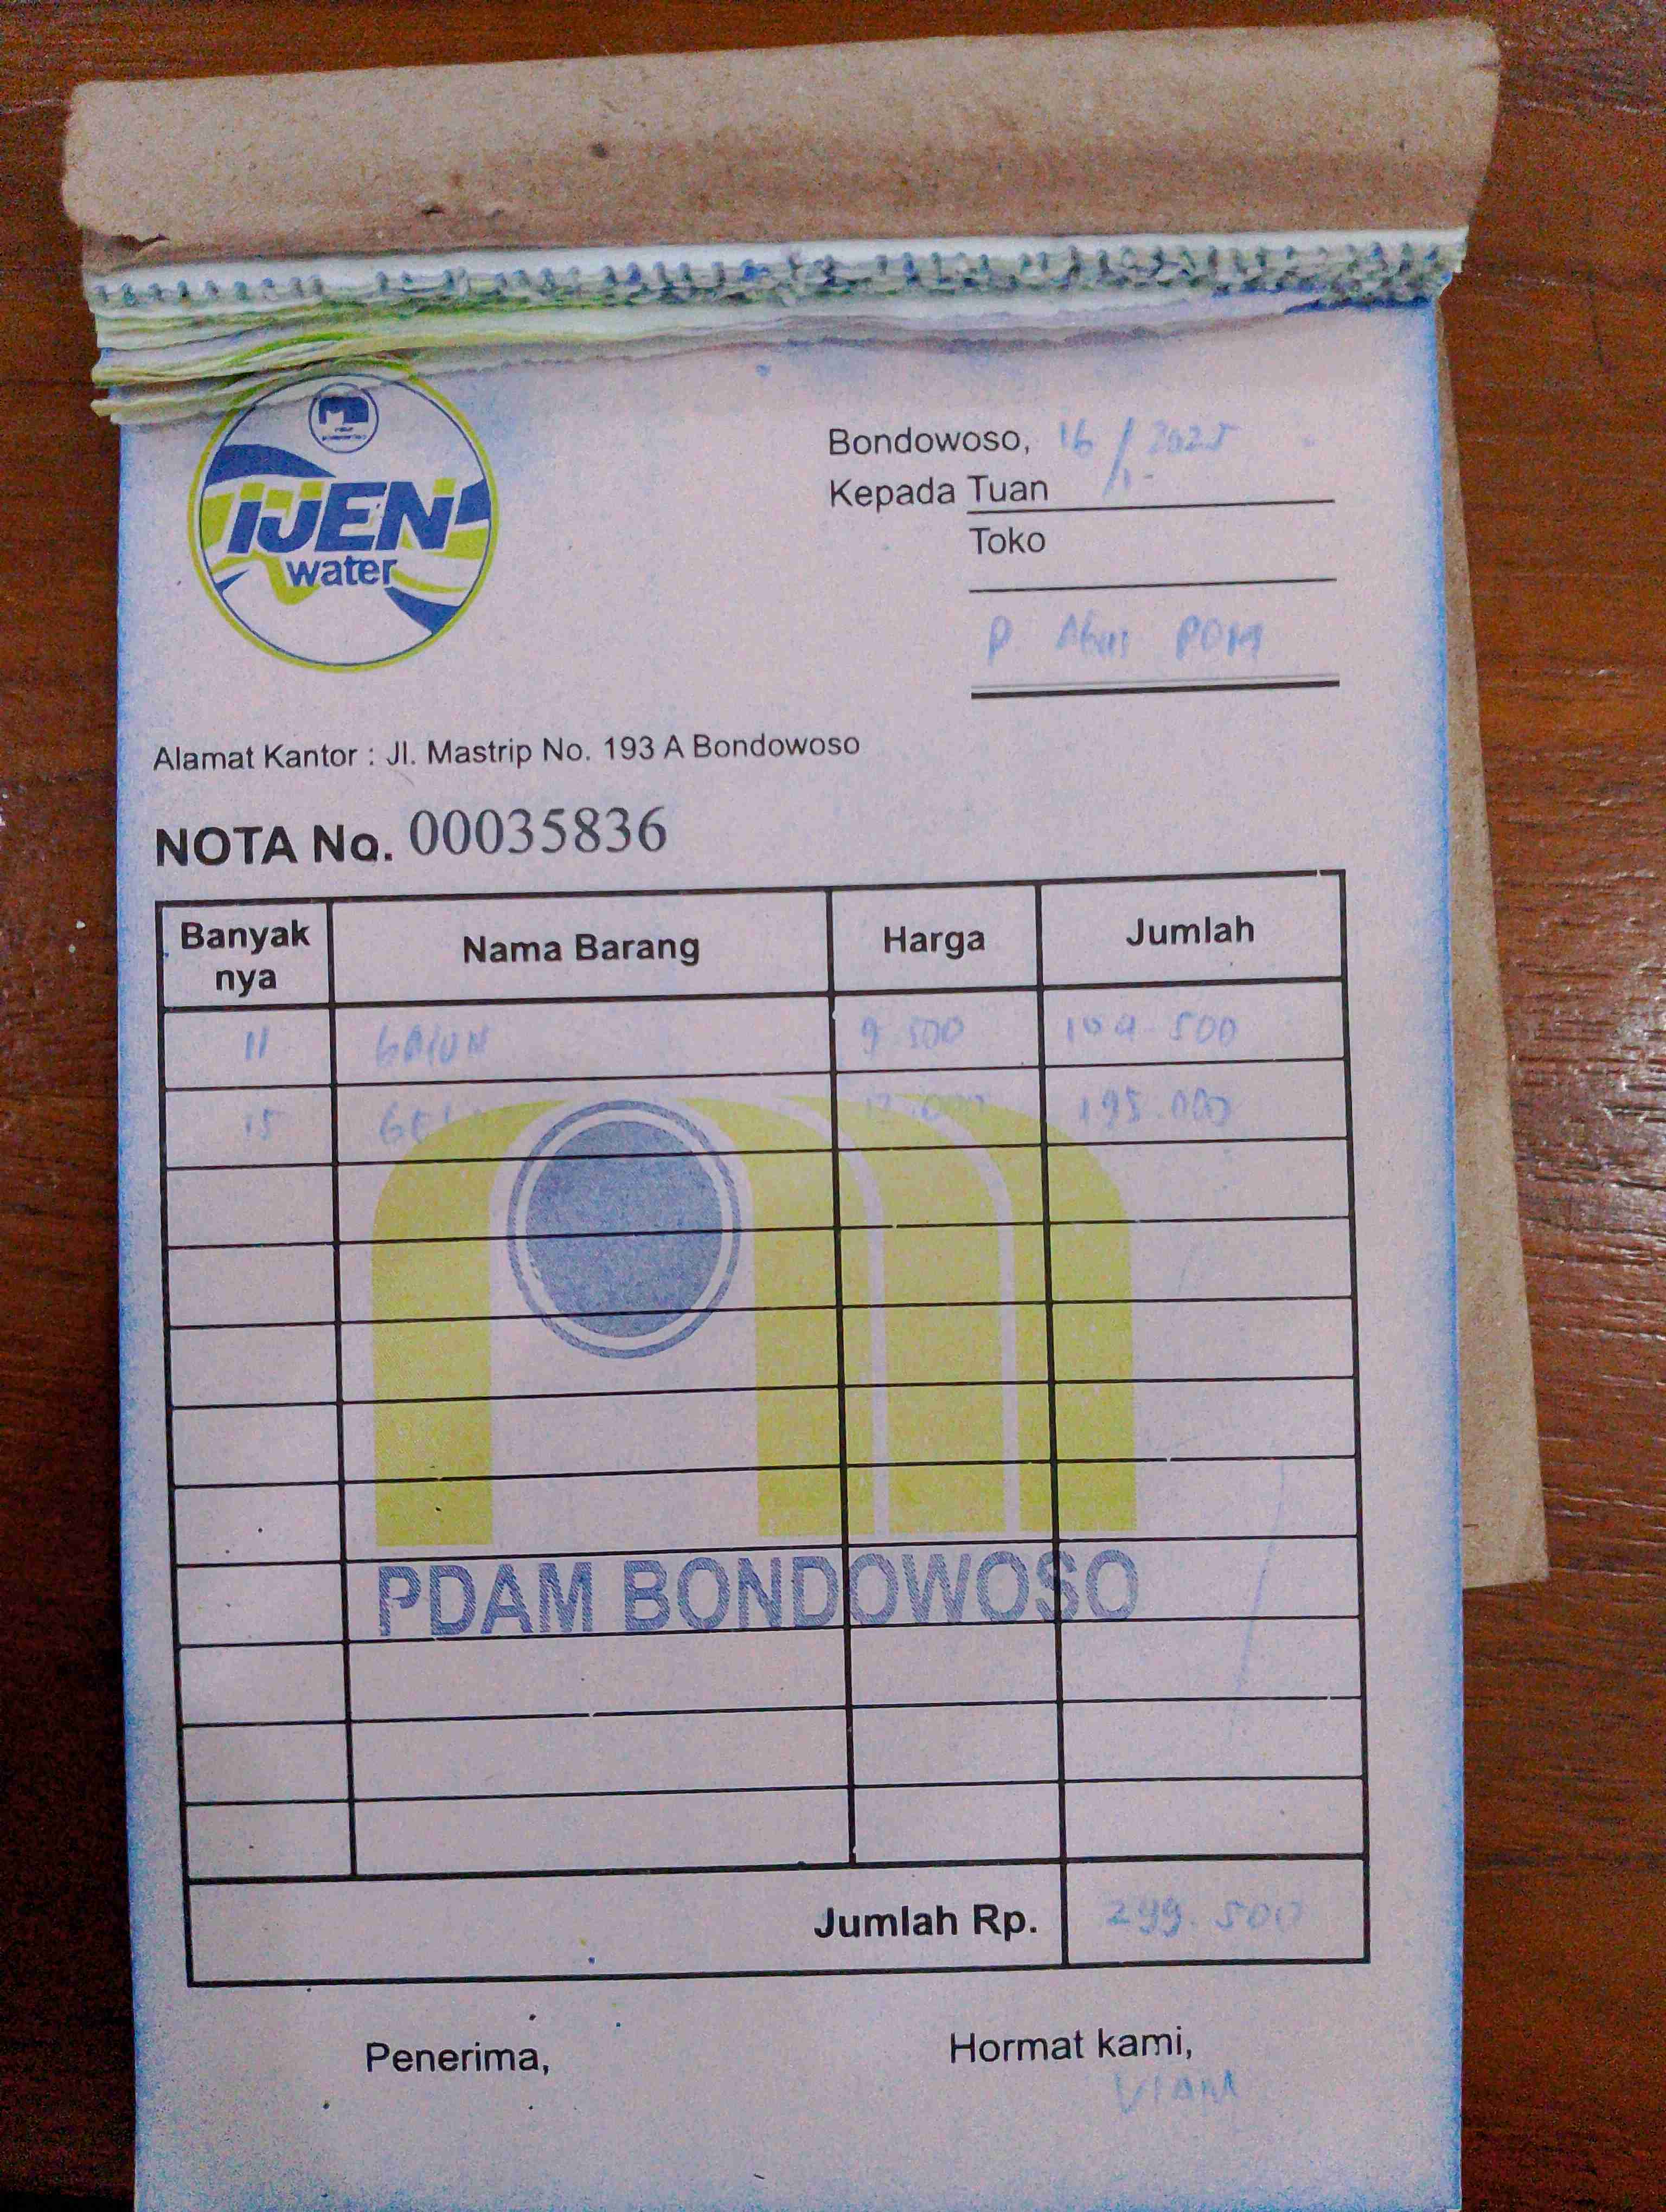 IJEN
water
Bondowoso, 16 / 2025
Kepada Tuan
Toko
P. Abas PDM
Alamat Kantor : Jl. Mastrip No. 193 A Bondowoso
NOTA No. 00035836
Banyak nya Nama Barang Harga Jumlah
11 GALON 9.500 104.500
15 195.000
PDAM BONDOWOSO
Jumlah Rp. 299.500
Penerima, Hormat kami,